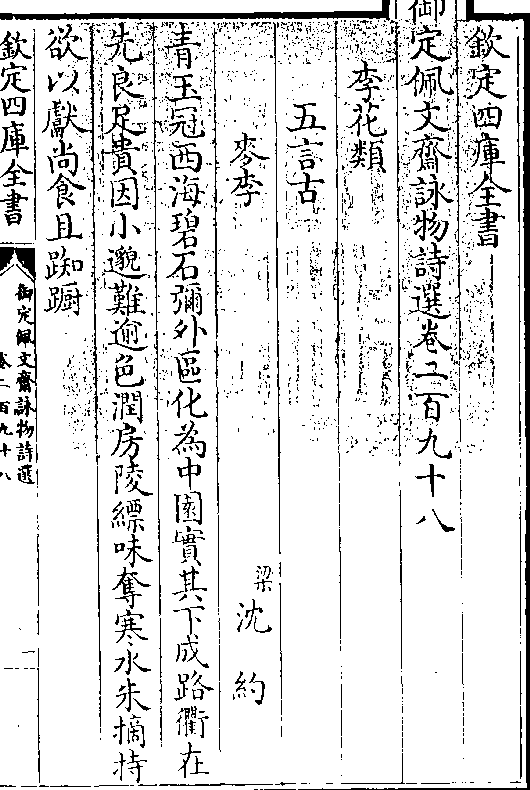 欽定四庫全書
御定佩文齋詠物詩選卷二百九十八
李花類
五言古
麥李
梁沈約
青玉冠西海碧石彌外區化為中園實其下成路衢在
先良足貴因小邈難逾色潤房陵縹味奪寒水朱摘持
欲以獻尚食且踟躕
欽定四庫全書
御定佩文齋詠物詩選
卷二百九十八
一